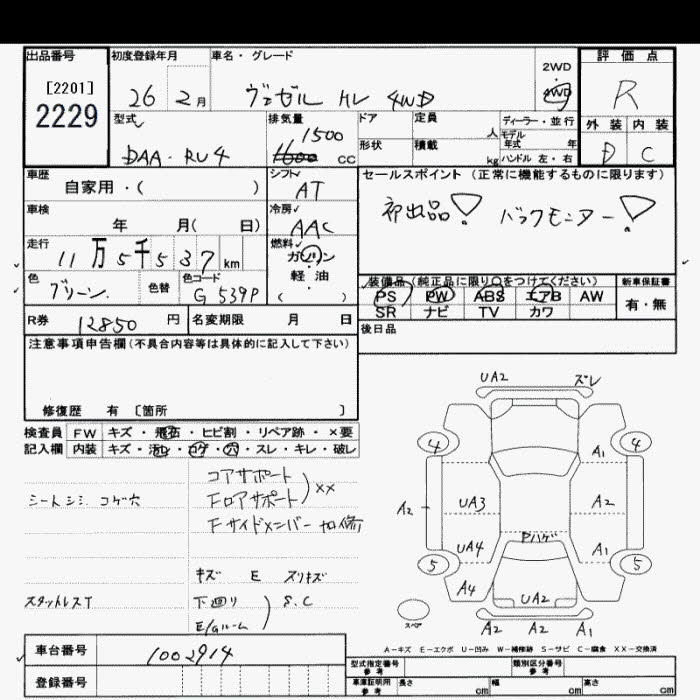 出品番号 初度登録年月 車名・グレード 2WD 4WD 評価点
[2201]
2229
26 2月 ヴェゼル HV 4WD R
型式 排気量 ドア 定員 人 ディーラー・並行 外装 内装
DAA-RU4 1500 1600 cc 形状 積載 kg モデル年式 年 ハンドル 左・右 D C
車歴 シフト セールスポイント (正常に機能するものに限ります)
自家用・( ) AT
初出品! バックモニター!
車検 冷房
年 月( 日) AAC
走行 燃料
11万5千537km ガソリン
軽・油
( )
色 色替 色コード
グリーン G 539P
装備品(純正品に限り○をつけてください) 新車保証書
PS PW ABS エアB AW 有・無
SR ナビ TV カワ
R券 12850円 名変期限 月 日 後日品
注意事項申告欄(不具合内容等は具体的に記入して下さい)
修復歴 有 〔箇所 〕
検査員 FW キズ・飛石・ヒビ割・リペア跡・×要
記入欄 内装 キズ・汚れ・コゲ・穴・スレ・キレ・破し
シートシミ コゲ穴
コアサポート
Fロアサポート ××
Fサイドメンバー 加修
キズ E スリキズ
スタットレスT
下廻り S.C
E/gルーム
UA2 ズレ
4 4
A1
A2 UA3 A2
Pハゲ
UA4 A1
5 5
A4
UA2
スペア A2 A2 A1
A-キズ E-エクボ U-凹み W-補修跡 S-サビ C-腐食 XX-交換済
車台番号 1002914
登録番号
型式指定番号 参考 類別区分番号 参考
車庫証明用 参考 長さ cm 幅 cm 高さ cm